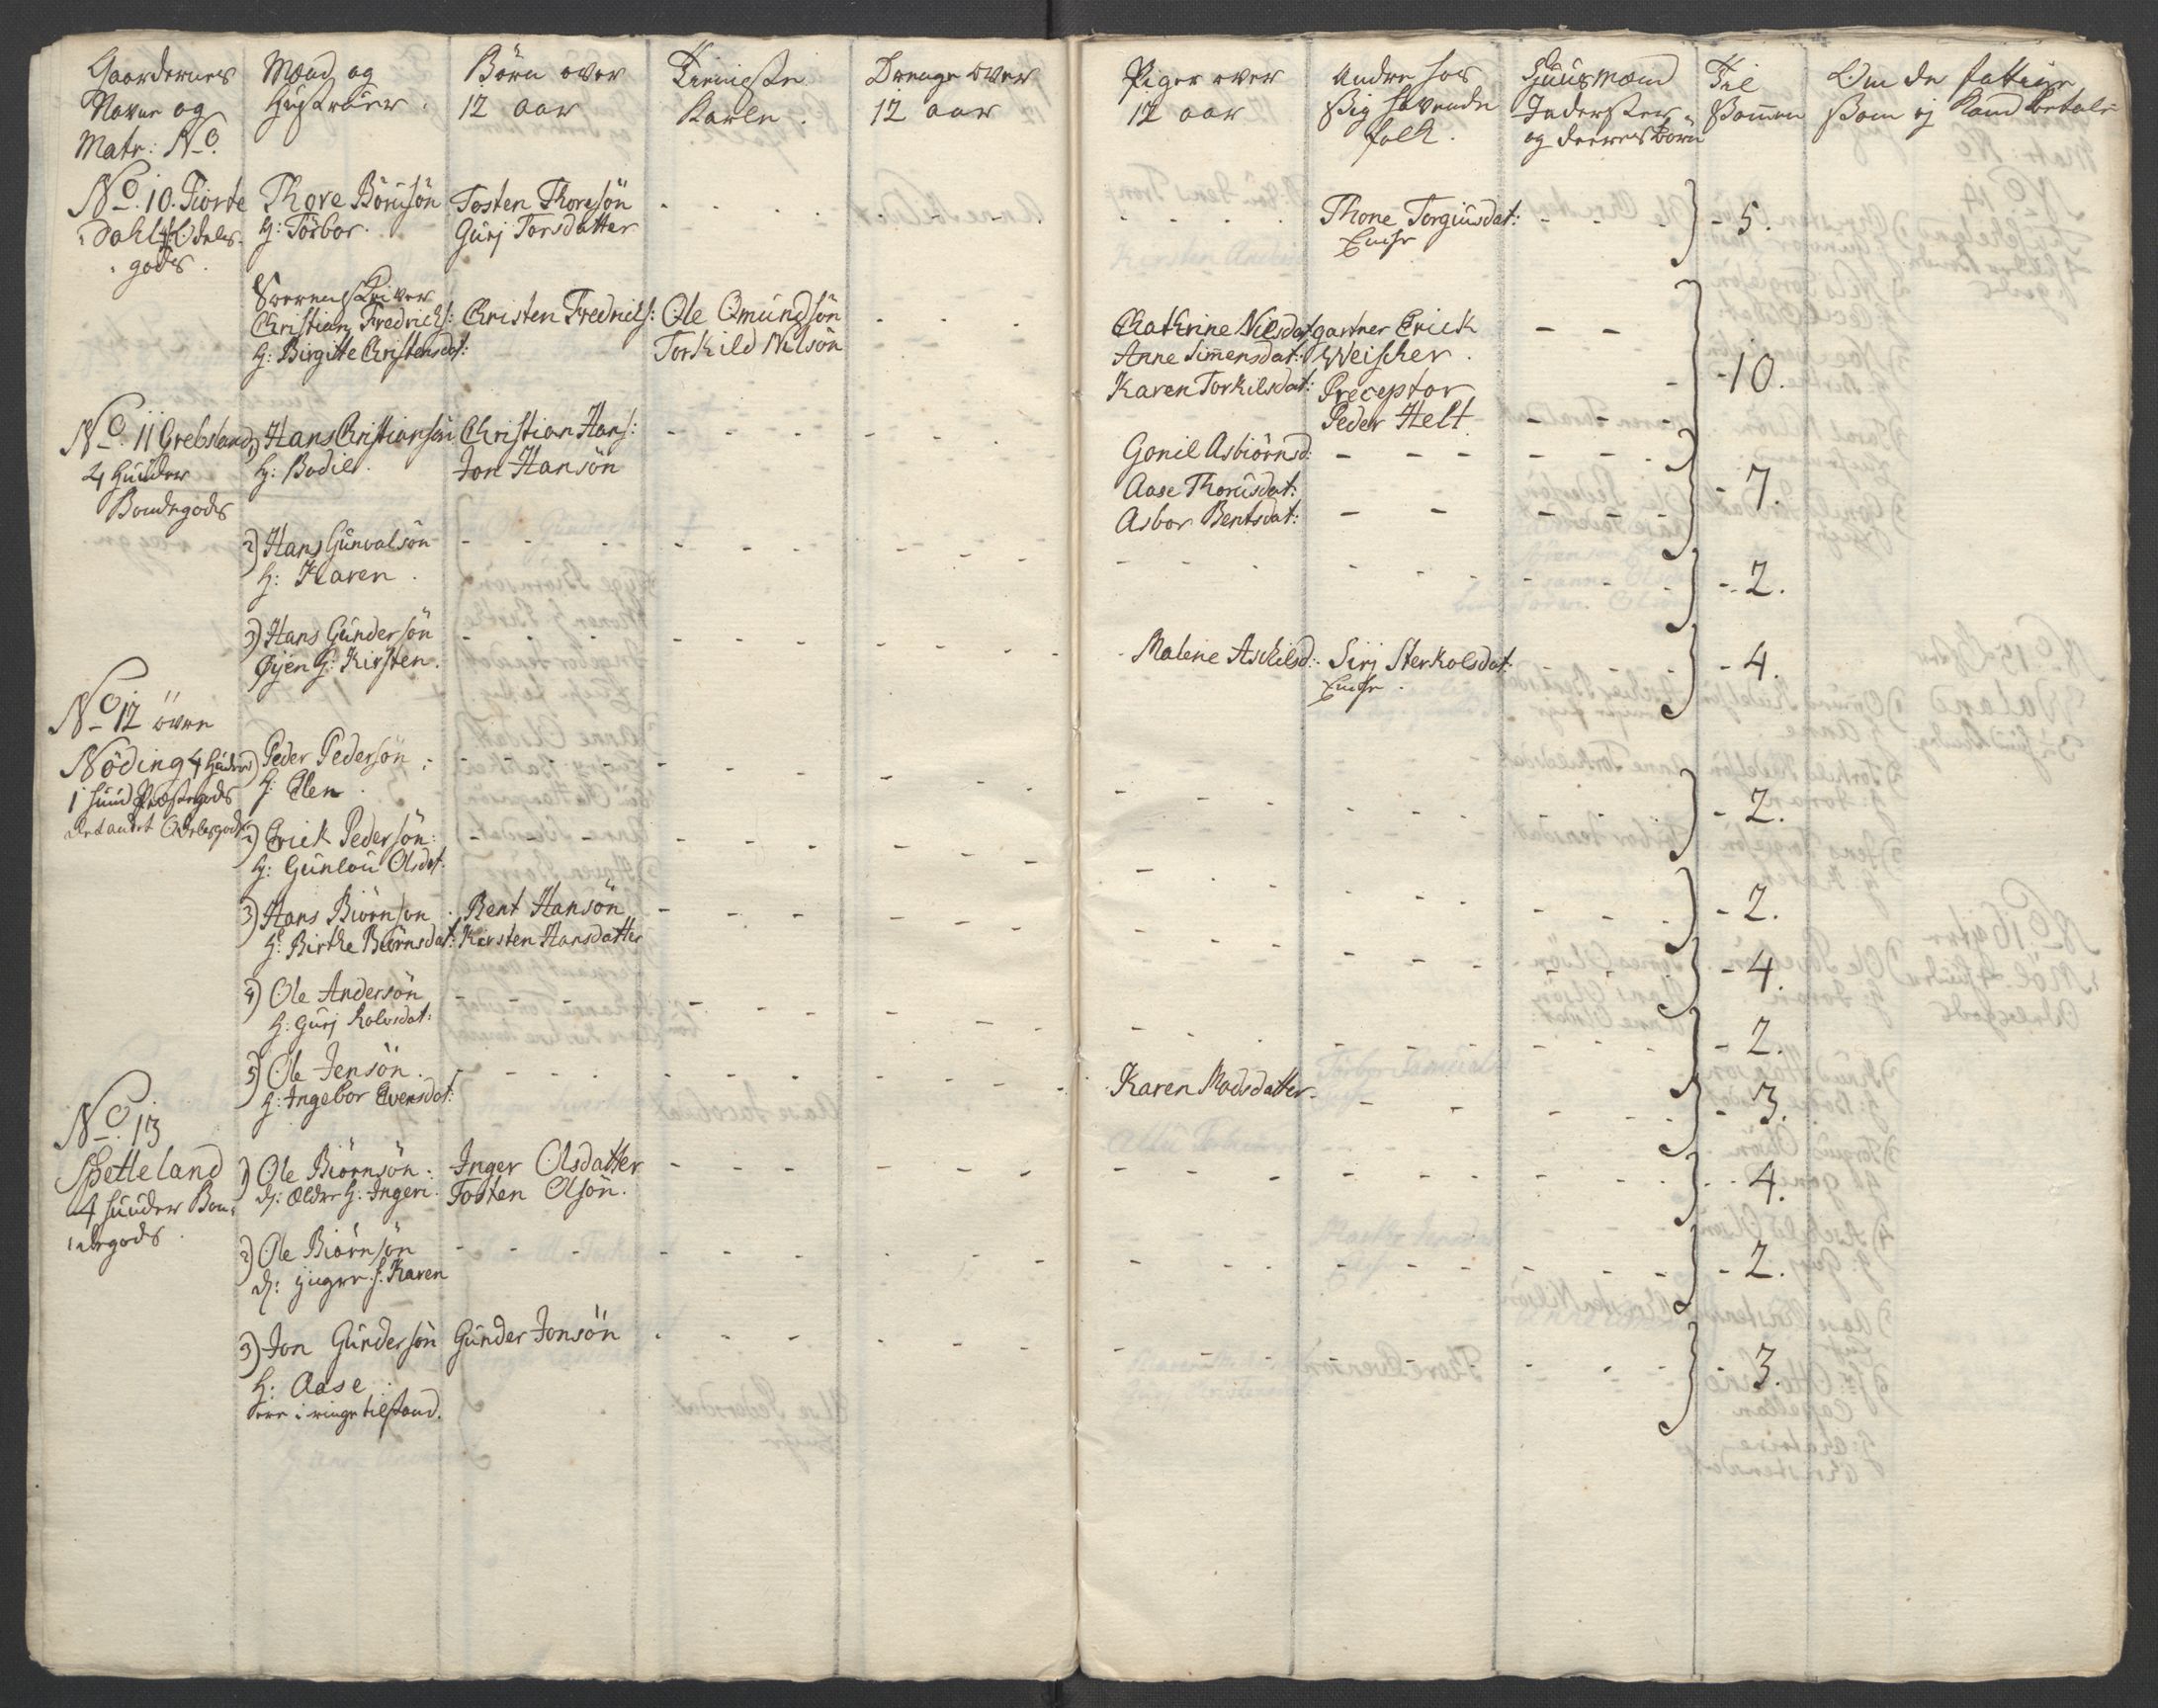 Gaardernes
Navne og
Matr: No.
Mænd og
Hustruer.
Börn over
12 aar
Tienneste
Karle.
Drenge over
12 aar
Piger over
12 aar
Andre hos
sig havende
folk.
Huusmænd
Inderster
og deeres börn
Til
Sammen
Om de fattige
som ej kand betale
No. 10. Fiorte
Dahl
gods.
Thore
H: Törbor.
Tosten Thoresön
Gurj Torsdatter
Thone Torgiusdat:
Encke
5.
Sorenskriver
Christian Fredrichs:
H: Birgitte Christensdat:
Christen Fredrichs:
Ole Omundsön
Torkild Nilsön
Chathrine Nilsdat:
Anne Simensdat:
Karen Torkilsdat:
gartner Erick
Weischer.
Preceptor
Peder Helt
10.
No. 11 Grebsland
4 Huuder
Bondegods
1) Hans Christiansön
H: Bodil.
Christian Hans:
Jon Hansön
Gonil Asbiörnsd:
Aase Thorusdat:
Asbor Bentsdat:
7.
2) Hans Gunvalsön
H: Karen.
2.
3) Hans Gundersön
Øyen H: Kirsten.
Malene Aschilsd:
Sirj Sterkolsdat:
Encke.
4.
No 12 övre
Nöding 4 Huuder
1 huud Præstegods
det andet Odelsgods
1) Peder Pedersön
H: Elen.
2.
2) Erick Pedersön:
H: Gunlou Olsdat.
2.
3) Hans Biörnson
H: Birthe Biörnsdat:
Bent Hansön
Kirsten Hansdatter
4.
4) Ole Andersön
H: Gurj Rolvsdat:
2.
5) Ole Jensön.
H: Ingebor Evensdat:
Karen Madsdatter.
3.
No. 13
Spetteland
4 huuder Bon-
degods.
1) Ole Biörnsön:
d: ældre H: Ingeri.
Inger Olsdatter
Tosten Olsön.
4.
2) Ole Biörnsön
d: yngre h. Karen
2.
3) Jon Gundersön
H: Aase:
ere i ringe tilstand.
Gunder Jonsön
3.